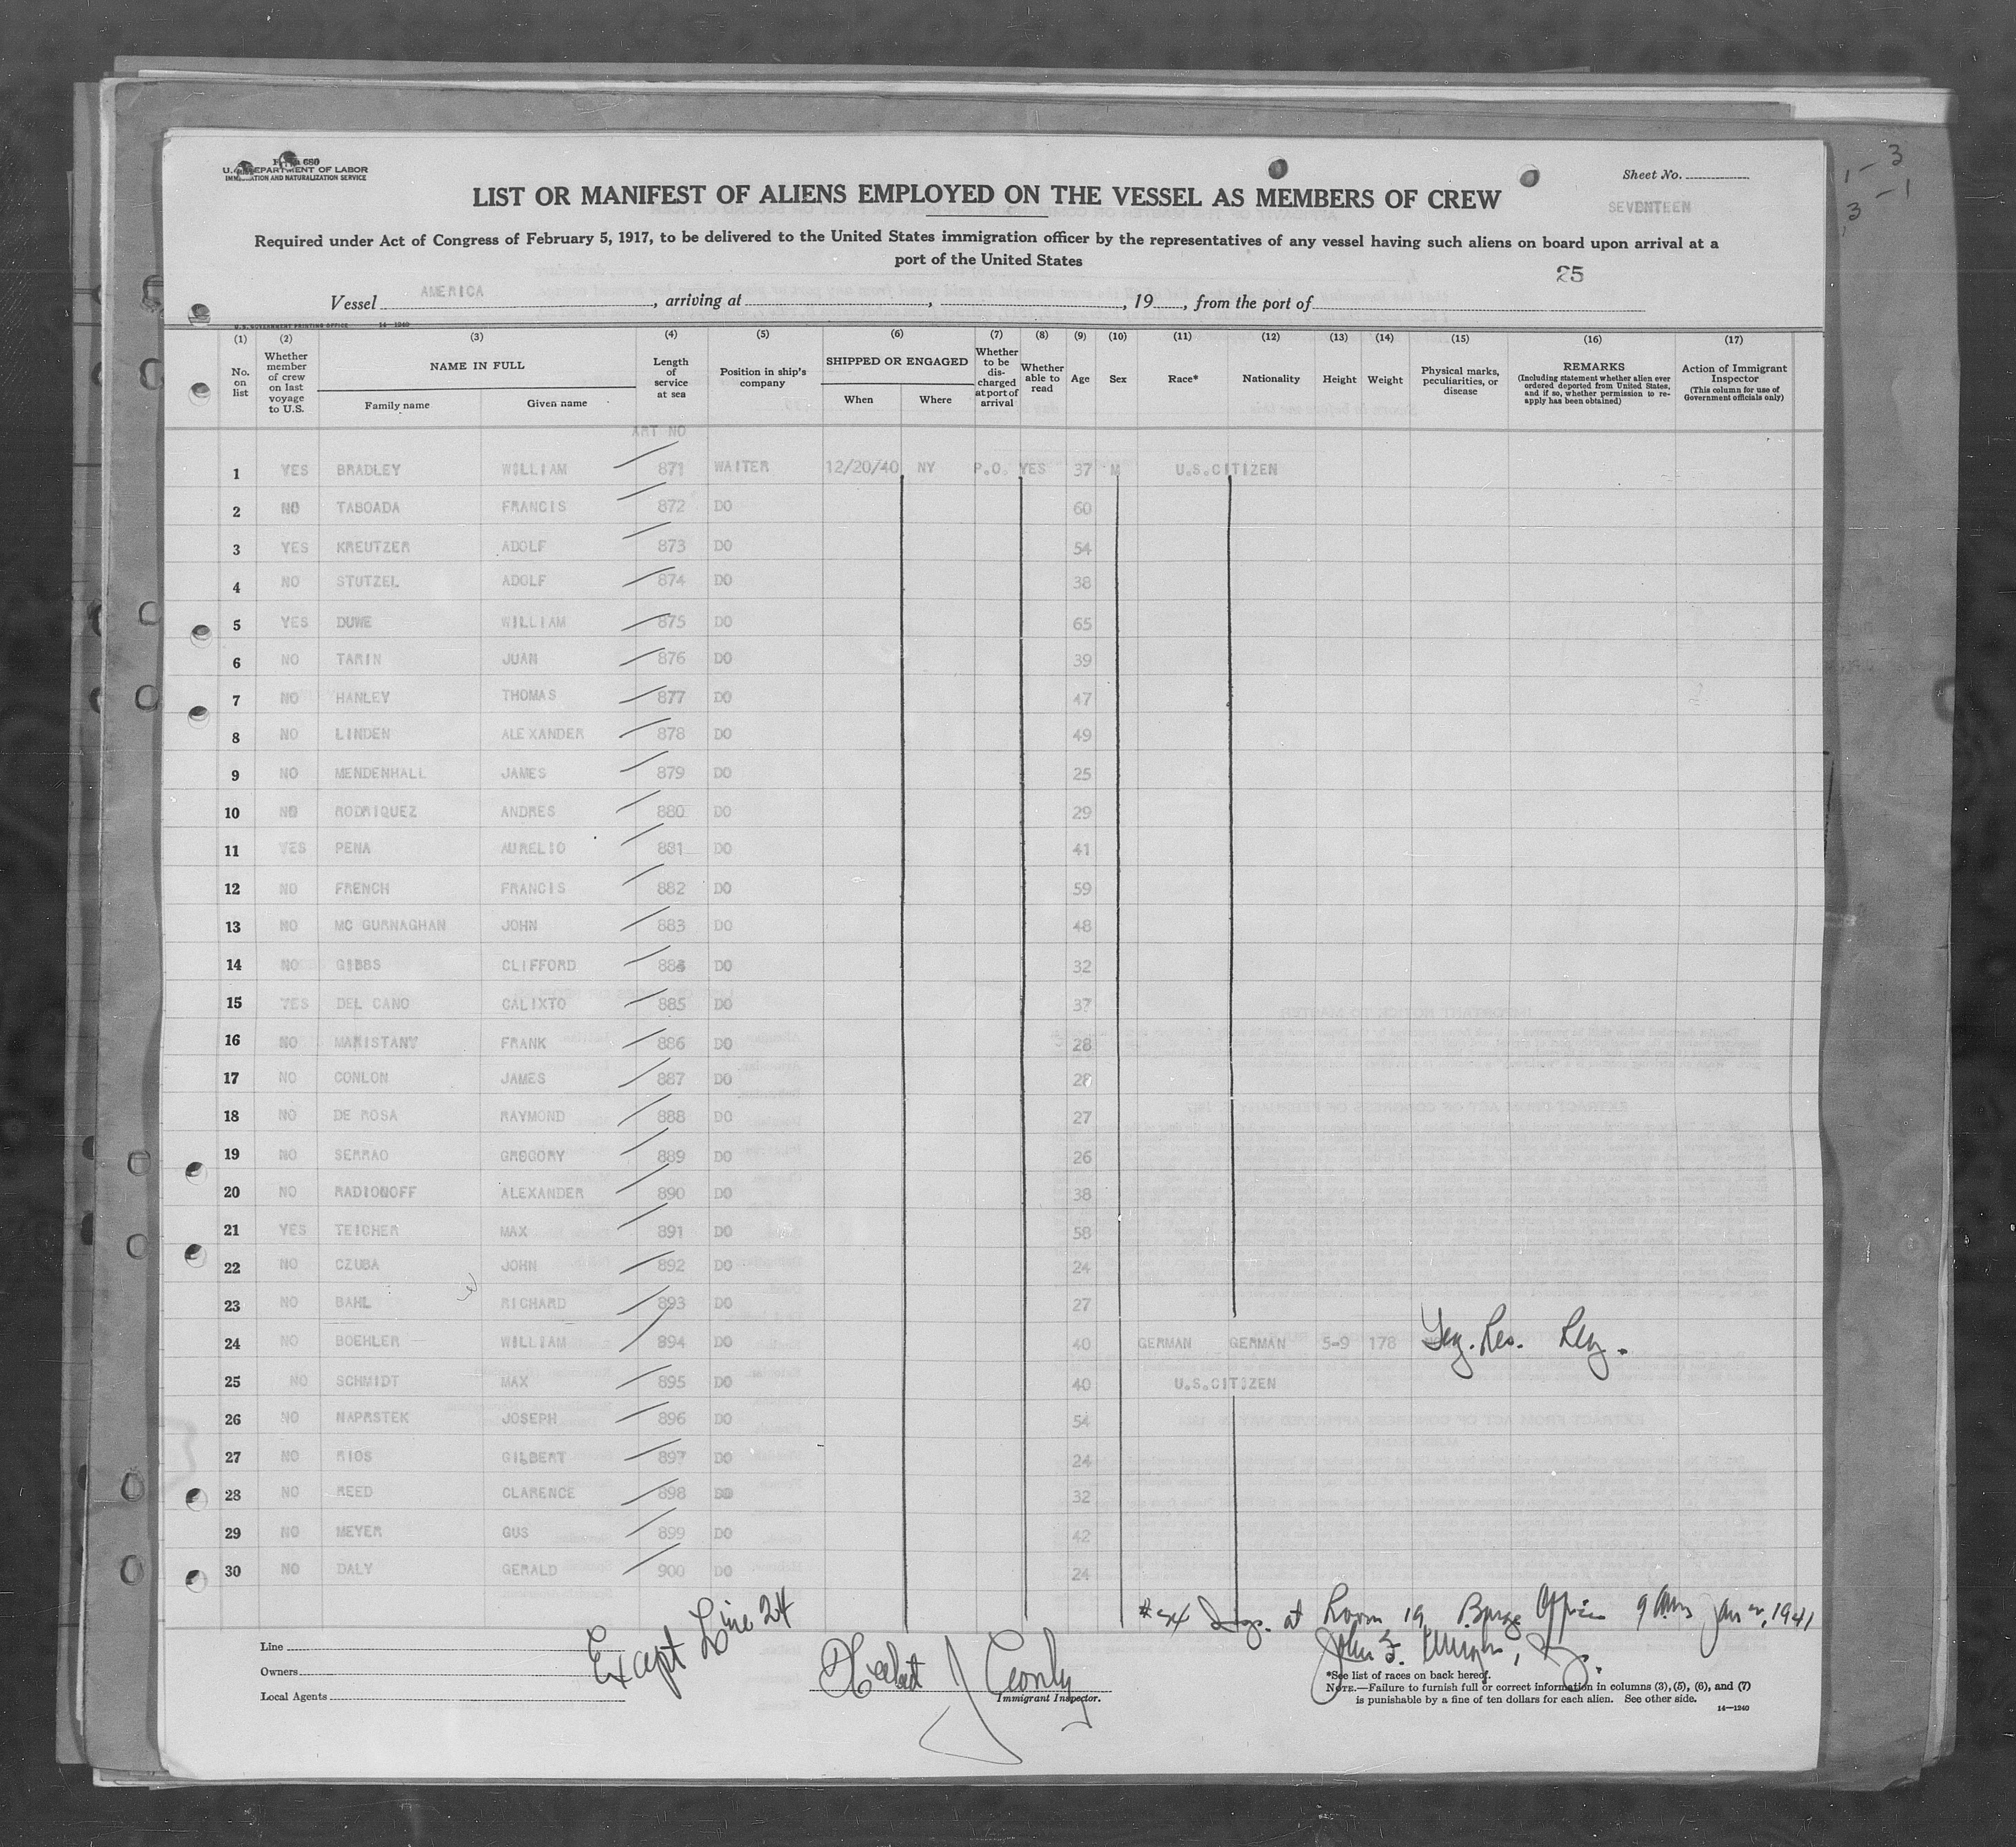 Form 680
U. S. DEPARTMENT OF LABOR
IMMIGRATION AND NATURALIZATION SERVICE
Sheet No.
SEVENTEEN
LIST OR MANIFEST OF ALIENS EMPLOYED ON THE VESSEL AS MEMBERS OF CREW
Required under Act of Congress of February 5, 1917, to be delivered to the United States immigration officer by the representatives of any vessel having such aliens on board upon arrival at a
port of the United States
25
Vessel AMERICA, arriving at , , 19 , from the port of
U. S. GOVERNMENT PRINTING OFFICE 14—1240
(1) (2) (3) (4) (5) (6) (7) (8) (9) (10) (11) (12) (13) (14) (15) (16) (17)
No. on list
Whether member of crew on last voyage to U.S.
NAME IN FULL
Family name Given name
Length of service at sea
Position in ship's company
SHIPPED OR ENGAGED
When Where
Whether to be discharged at port of arrival
Whether able to read
Age Sex Race* Nationality Height Weight
Physical marks, peculiarities, or disease
REMARKS
(Including statement whether alien ever ordered deported from United States, and if so, whether permission to re-apply has been obtained)
Action of Immigrant Inspector
(This column for use of Government officials only)
ART NO
1 YES BRADLEY WILLIAM 871 WAITER 12/20/40 NY P.O. YES 37 M U.S.CITIZEN
2 NO TABOADA FRANCIS 872 DO 60
3 YES KREUTZER ADOLF 873 DO 54
4 NO STUTZEL ADOLF 874 DO 38
5 YES DUWE WILLIAM 875 DO 65
6 NO TARIN JUAN 876 DO 39
7 NO HANLEY THOMAS 877 DO 47
8 NO LINDEN ALEXANDER 878 DO 49
9 NO MENDENHALL JAMES 879 DO 25
10 NO RODRIQUEZ ANDRES 880 DO 29
11 YES PENA AURELIO 881 DO 41
12 NO FRENCH FRANCIS 882 DO 59
13 NO MC GURNAGHAN JOHN 883 DO 48
14 NO GIBBS CLIFFORD 884 DO 32
15 YES DEL CANO CALIXTO 885 DO 37
16 NO MARISTANY FRANK 886 DO 28
17 NO CONLON JAMES 887 DO 28
18 NO DE ROSA RAYMOND 888 DO 27
19 NO SERRAO GREGORY 889 DO 26
20 NO RADIONOFF ALEXANDER 890 DO 38
21 YES TEICHER MAX 891 DO 58
22 NO CZUBA JOHN 892 DO 24
23 NO BAHL RICHARD 893 DO 27
24 NO BOEHLER WILLIAM 894 DO 40 GERMAN GERMAN 5-9 178 Leg. Res.
25 NO SCHMIDT MAX 895 DO 40 U.S.CITIZEN
26 NO NAPRSTEK JOSEPH 896 DO 54
27 NO RIOS GILBERT 897 DO 24
28 NO REED CLARENCE 898 DO 32
29 NO MEYER GUS 899 DO 42
30 NO DALY GERALD 900 DO 24
Except Line 24
#24 at Room 19 Barge Office 9 am Jan 2, 1941
John F.
Line
Owners
Local Agents
Immigrant Inspector.
*See list of races on back hereof.
NOTE.—Failure to furnish full or correct information in columns (3), (5), (6), and (7)
is punishable by a fine of ten dollars for each alien. See other side.
14—1240
1 - 3
3 - 1